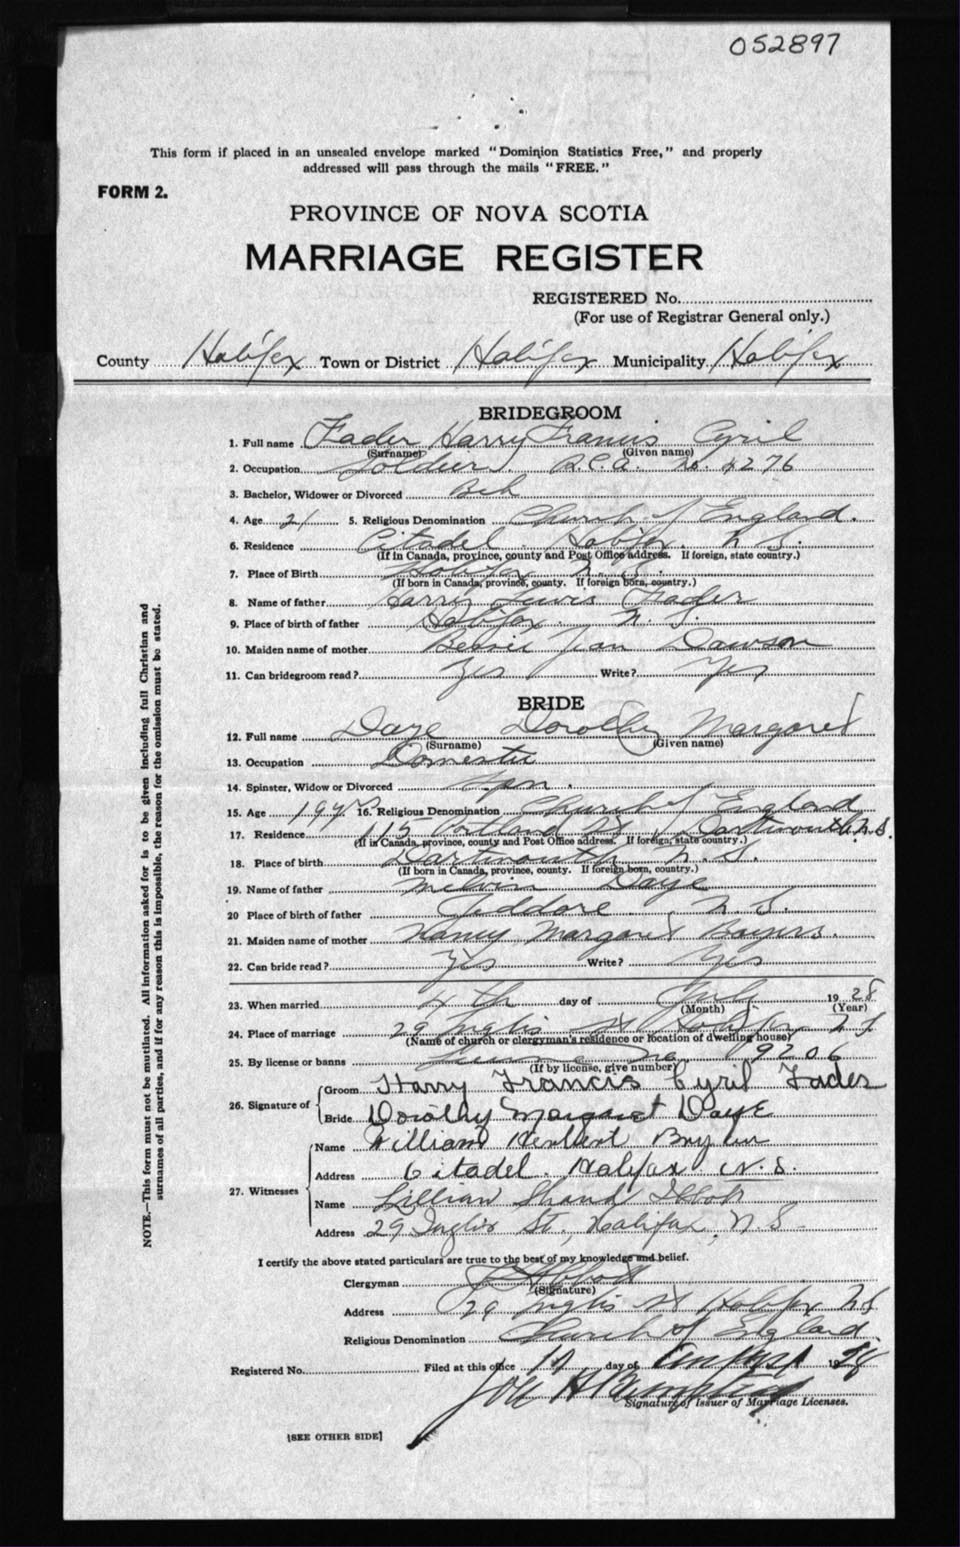 052897
This form if placed in an unsealed envelope marked "Dominion Statistics Free," and properly
addressed will pass through the mails "FREE."
FORM 2.
PROVINCE OF NOVA SCOTIA
MARRIAGE REGISTER
REGISTERED No.
(For use of Registrar General only.)
County Halifax Town or District Halifax Municipality Halifax
BRIDEGROOM
1. Full name Fader Harry Francis Cyril
(Surname) (Given name)
2. Occupation Soldier. R.C.A. No. 4276
3. Bachelor, Widower or Divorced Bch
4. Age 21 5. Religious Denomination Church of England.
6. Residence Citadel Halifax. N. S.
(If in Canada, province, county and Post Office address. If foreign, state country.)
7. Place of Birth Halifax N. S.
(If born in Canada, province, county. If foreign born, country.)
8. Name of father Harry Lewis Fader
9. Place of birth of father Halifax. N. S.
10. Maiden name of mother Bessie Jean Dawson
11. Can bridegroom read? Yes Write? Yes
BRIDE
12. Full name Daye Dorothy Margaret
(Surname) (Given name)
13. Occupation Domestic
14. Spinster, Widow or Divorced Spn.
15. Age 19 16. Religious Denomination Church of England
17. Residence 115 Portland St Dartmouth N.S.
(If in Canada, province, county and Post Office address. If foreign, state country.)
18. Place of birth Dartmouth N. S.
(If born in Canada, province, county. If foreign born, country.)
19. Name of father Melvin Daye
20 Place of birth of father Jeddore, N. S.
21. Maiden name of mother Nancy Margaret
22. Can bride read? Yes Write? Yes
23. When married 4th day of July 1928
(Month) (Year)
24. Place of marriage 29 Inglis St Halifax N S
(Name of church or clergyman's residence or location of dwelling house)
25. By license or banns License No. 9206
(If by license, give number)
26. Signature of
Groom Harry Francis Cyril Fader
Bride Dorothy Margaret Daye
27. Witnesses
Name William Herbert
Address Citadel. Halifax. N. S.
Name Lillian Shand
Address 29 Inglis St., Halifax, N. S.
I certify the above stated particulars are true to the best of my knowledge and belief.
Clergyman
(Signature)
Address 29 Inglis St Halifax N.S
Religious Denomination Church of England
Registered No. Filed at this office day of August 1928
Signature of Issuer of Marriage Licenses.
[SEE OTHER SIDE]
NOTE.—This form must not be mutilated. All information asked for is to be given including full Christian and
surnames of all parties, and if for any reason this is impossible, the reason for the omission must be stated.